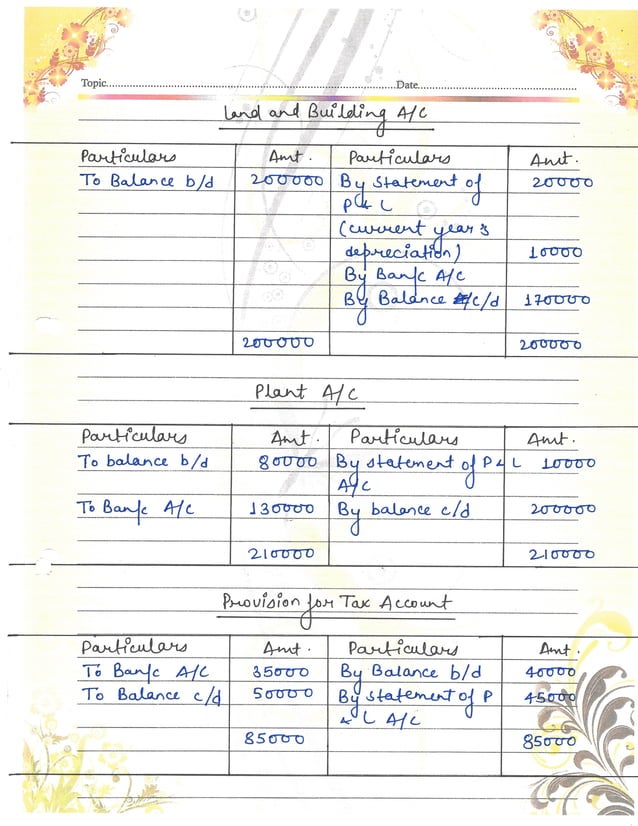 Topic.....Date.....
Land and Building A/C
Particulars Amt. Particulars Amt.
To Balance b/d 200000 By Statement of 20000
P & L
(current year's
depreciation) 10000
By Bank A/C
By Balance c/d 170000
200000 200000
Plant A/C
Particulars Amt. Particulars Amt.
To balance b/d 80000 By statement of P & L 10000
A/C
To Bank A/C 130000 By balance c/d 200000
210000 210000
Provision for Tax Account
Particulars Amt. Particulars Amt.
To Bank A/C 35000 By Balance b/d 40000
To Balance c/d 50000 By Statement of P 45000
& L A/C
85000 85000